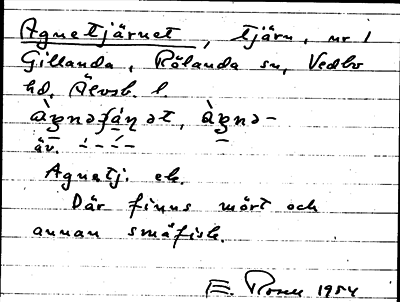 Agnetjärnet, tjärn, nr 1
Gillanda, Rölanda sn, Vedbo
hd, Älvsb. l.
àgnəʃä́ɳət, àgnə-
äv. -́-- -́--
Agnetj. ek.
Där finns mört och
annan småfisk.
E. Rosén 1954